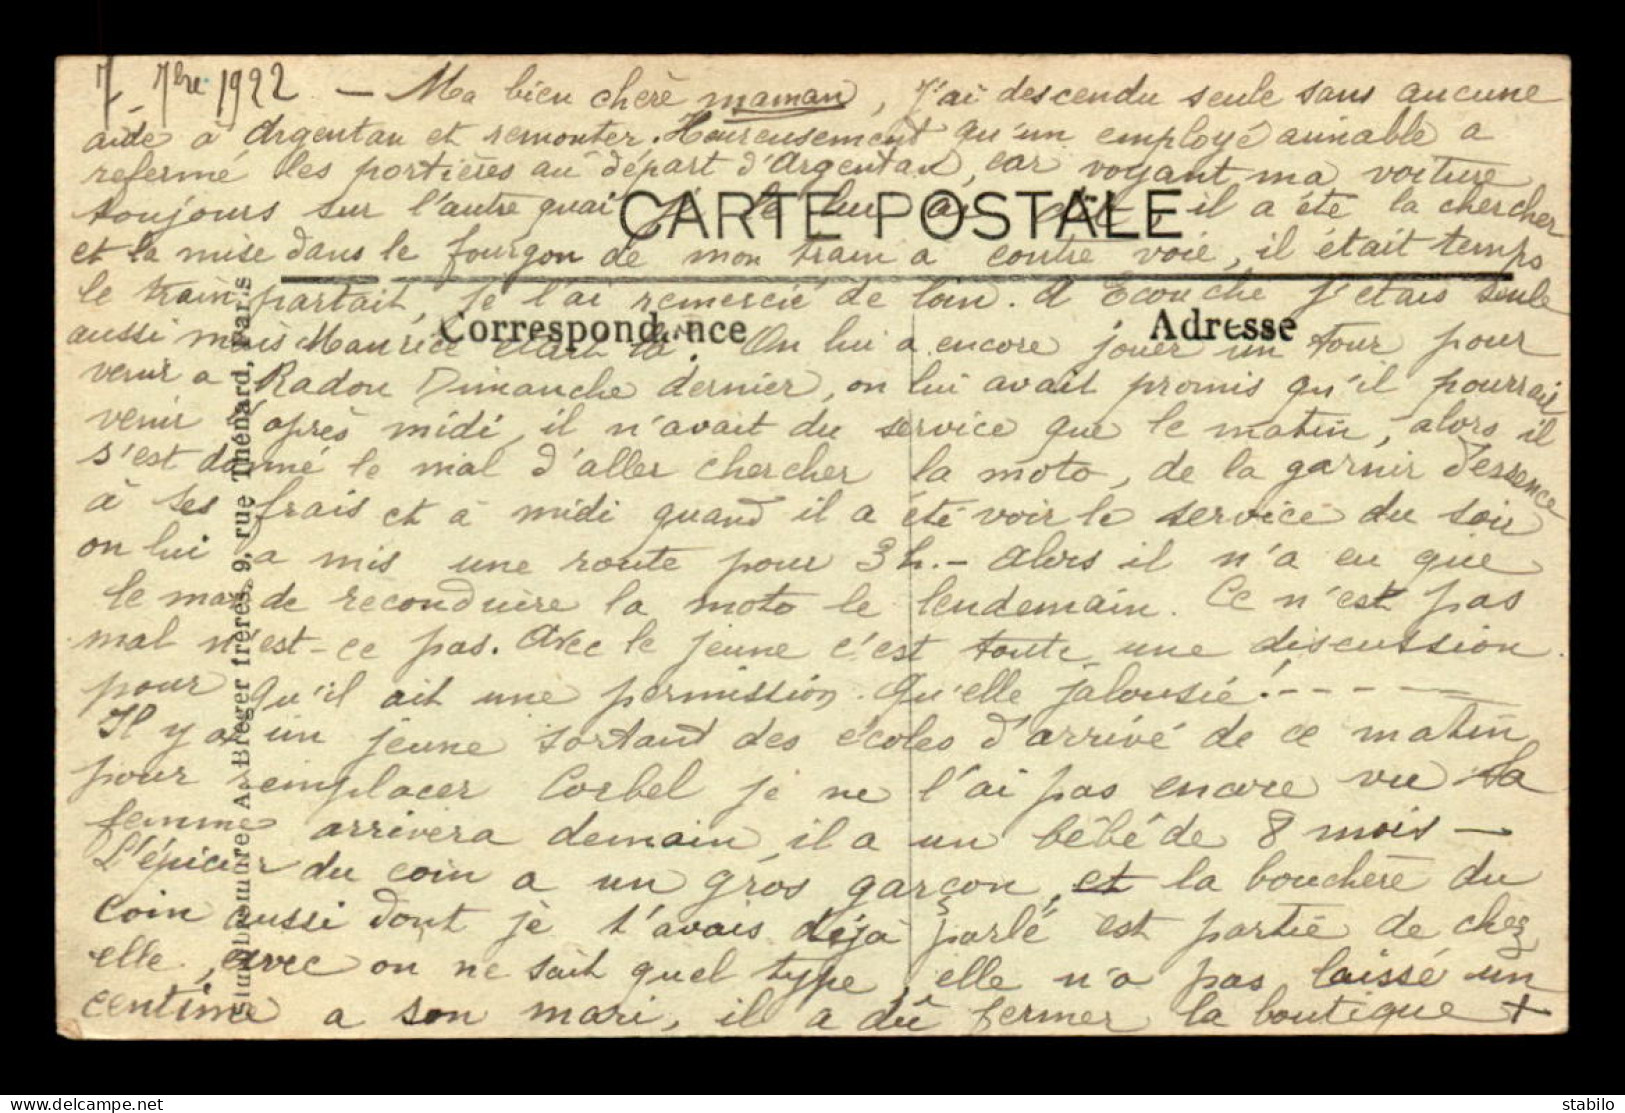 7 - 7bre 1922 — Ma bien chère maman, J'ai descendu seule sans aucune
aide à Argentan et remonter. Heureusement qu'un employé aimable a
refermé les portières au départ d'Argentan, car voyant ma voiture
toujours sur l'autre quai je le lui ai dit, il a été la chercher
CARTE POSTALE
et la mise dans le fourgon de mon train a contre voie, il était temps
le train partait, je l'ai remercié de loin. A Ecouché j'etais seule
Correspondance
Adresse
aussi mais Maurice était là. On lui a encore jouer un tour pour
venir a Radon Dimanche dernier, on lui avait promis qu'il pourrait
venir l'après midi, il n'avait du service que le matin, alors il
s'est donné le mal d'aller chercher la moto, de la garnir d'essence
à ses frais et à midi quand il a été voir le service du soir
on lui a mis une route pour 3 h. - alors il n'a eu que
le mal de reconduire la moto le lendemain. Ce n'est pas
mal n'est-ce pas. Avec le jeune c'est toute une discussion
pour qu'il ait une permission. Qu'elle jalousie! - - - - -
Il y a un jeune sortant des écoles d'arrivé de ce matin
pour remplacer Corbel je ne l'ai pas encore vu sa
femme arrivera demain, il a un bébé de 8 mois —
L'épicier du coin a un gros garçon, et la bouchère du
coin aussi dont je t'avais déjà parlé est partie de chez
elle, avec on ne sait quel type, elle n'a pas laissé un
centime a son mari, il a dû fermer la boutique +
Etablissements A. Breger frères, 9, rue Thénard, Paris
www.delcampe.net
stabilo